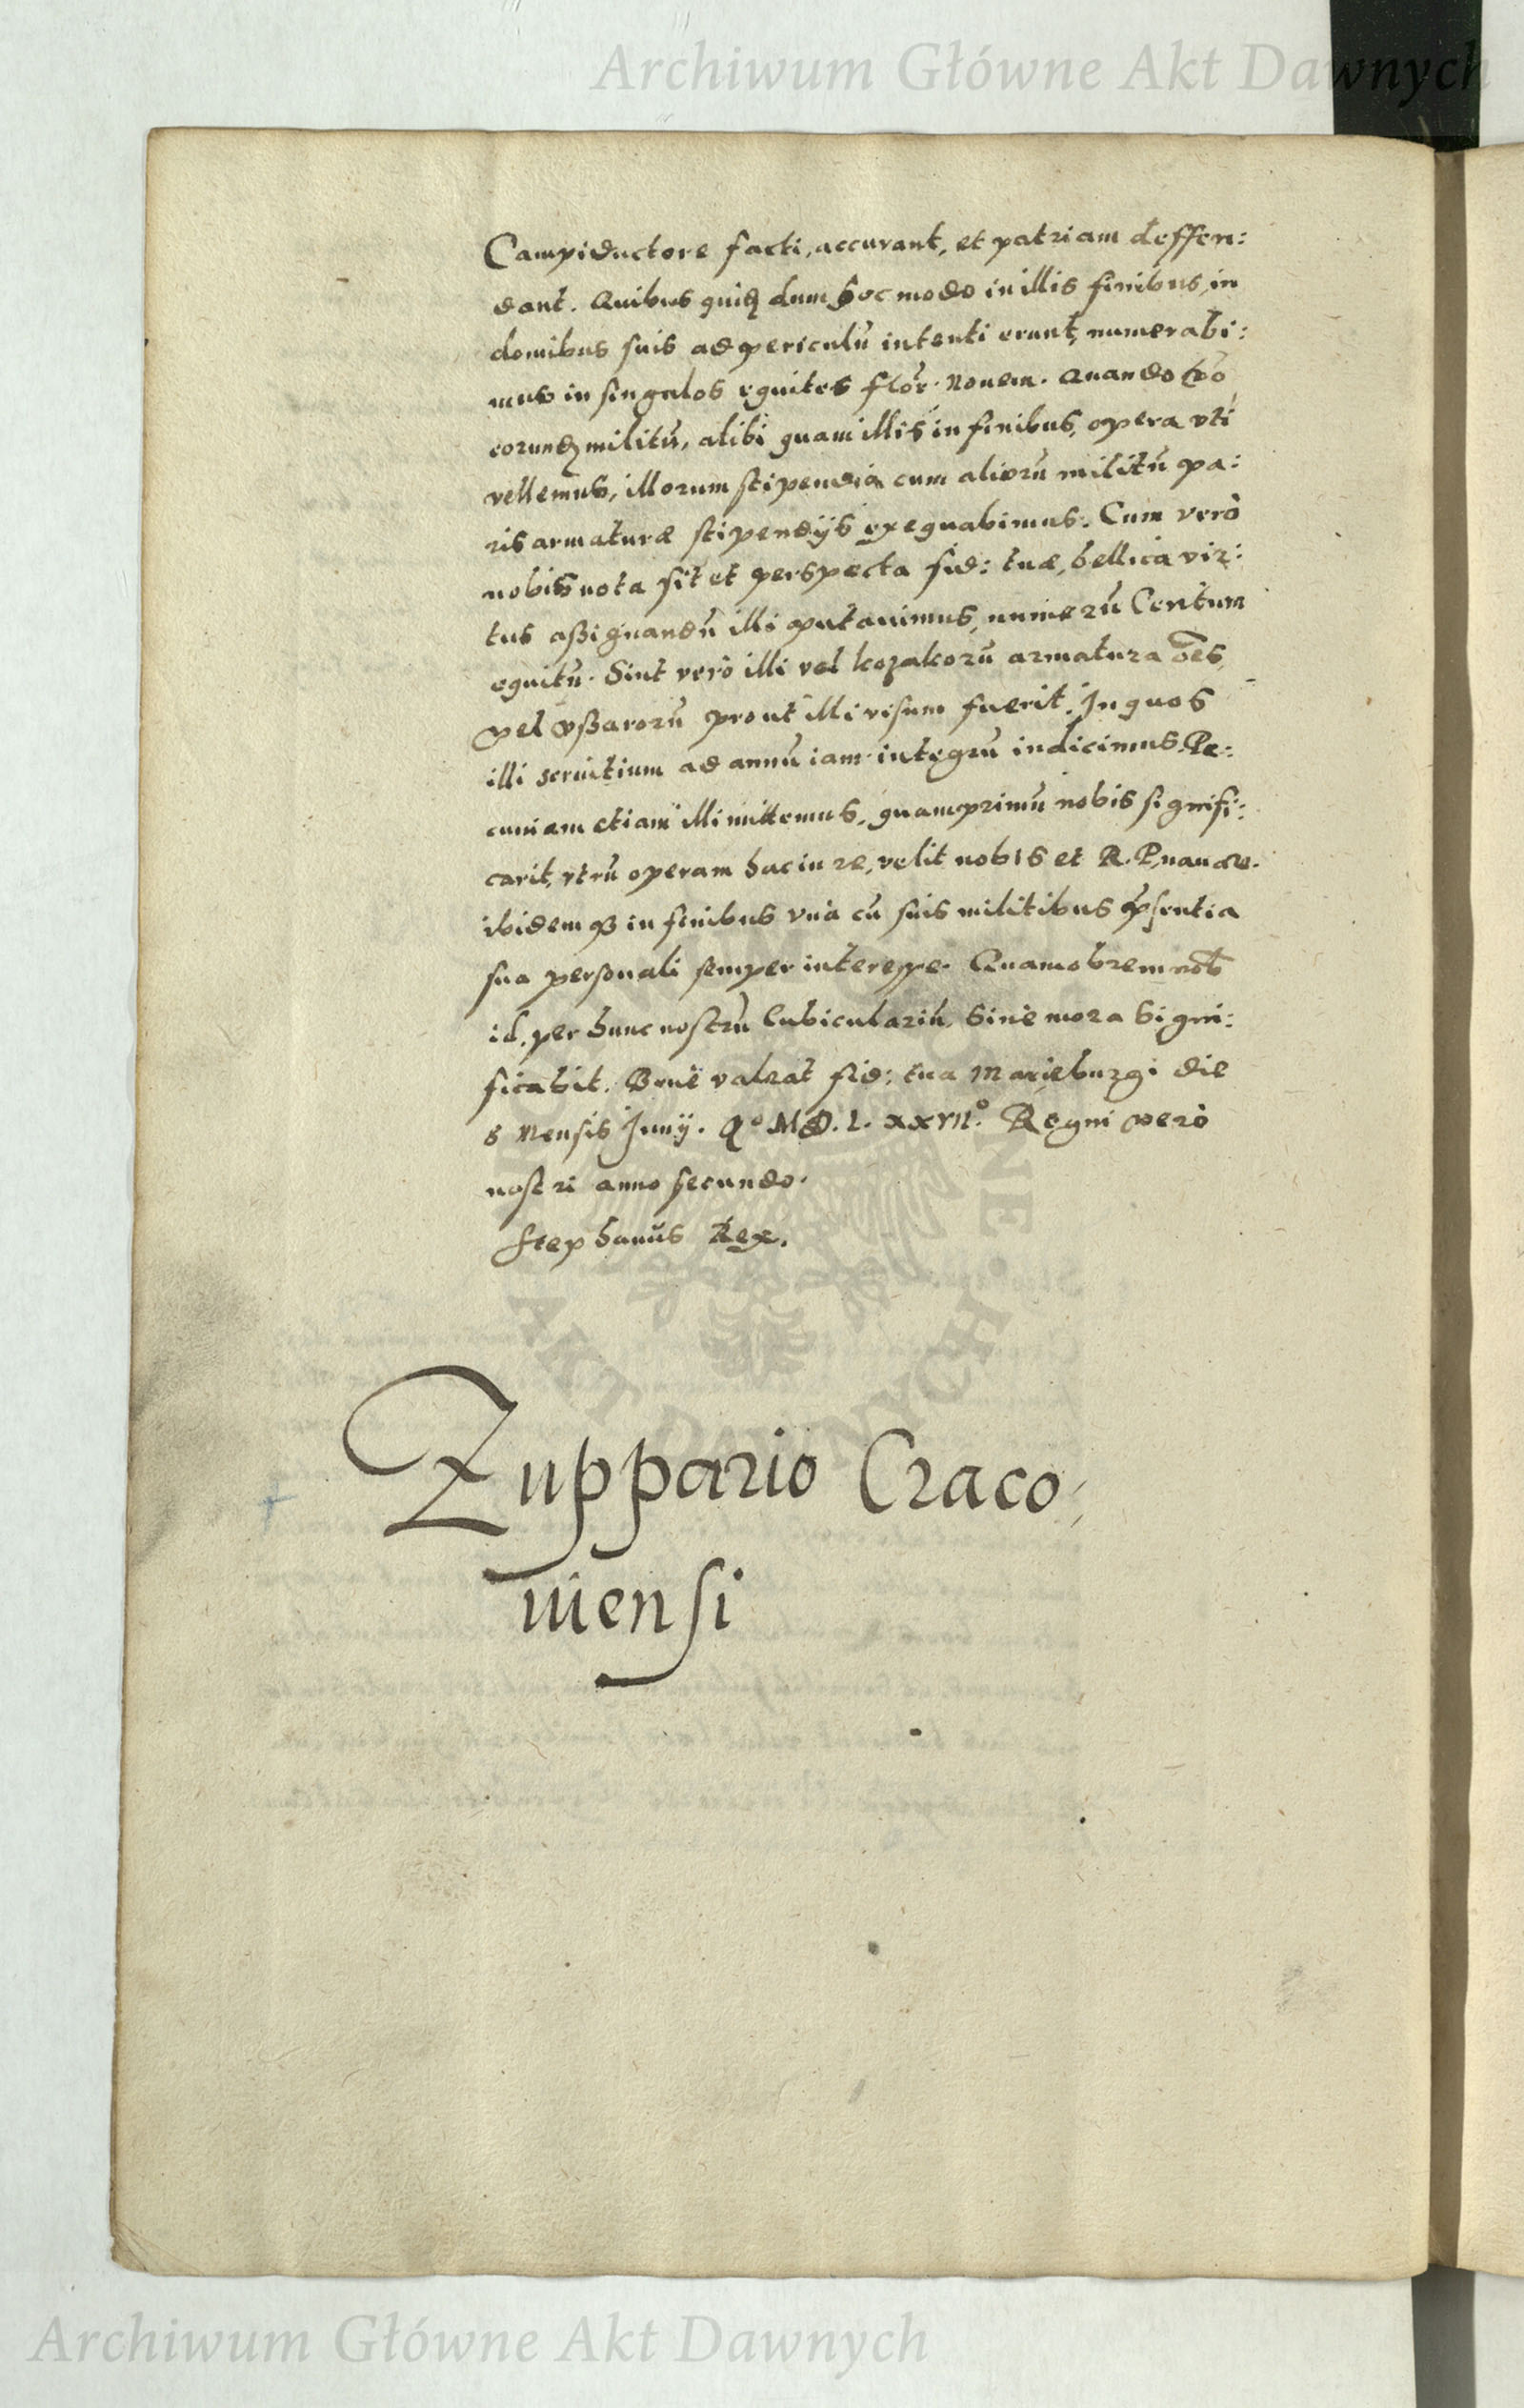 Archiwum Główne Akt Dawnych
Campiductore facti, accurant, et patriam deffen:
dant. Quibus quiđ dum hoc modo in illis finibus, in
domibus suis ad periculū intenti erunt, numerabi:
mus in singulos equites flor. Nouem. Quando vō
eorundꝫ militū, alibi quam illis in finibus, opera vti
vellemus, illorum stipendia cum aliorū militū pa:
ris armaturæ stipendijs exequabimus. Cum verò
nobis nota sit et perspecta fid: tuæ, bellica vir:
tus aßignandū illi putauimus, numerū Centum
equitū. Sint verò illi vel kozakorū armatura oēs,
vel vßarorū prout illi visum fuerit. In quos
illi seruitium ad annū iam integrū indicimus. Pe:
cuniam etiam illi mittemus, quamprimū nobis signifi:
carit, vtrū operam hac in re, velit nobis et R. P. nauare.
ibidemqꝫ in finibus vnà cū suis militibus p̃sentia
sua personali semper interesse. Quamobrem nob
id, per hunc nostrū Cubiculariū, sine mora signi:
ficabit. Benè valeat fid: tua Marieburgi die
6 Mensis Junij. Aº MD. L. xxvııº. Regni verò
nostri anno secundo.
Stephanus Rex.
Zuppario Craco,
uiensi
GŁÓWNE • AKT DAWNYCH •
Archiwum Główne Akt Dawnych